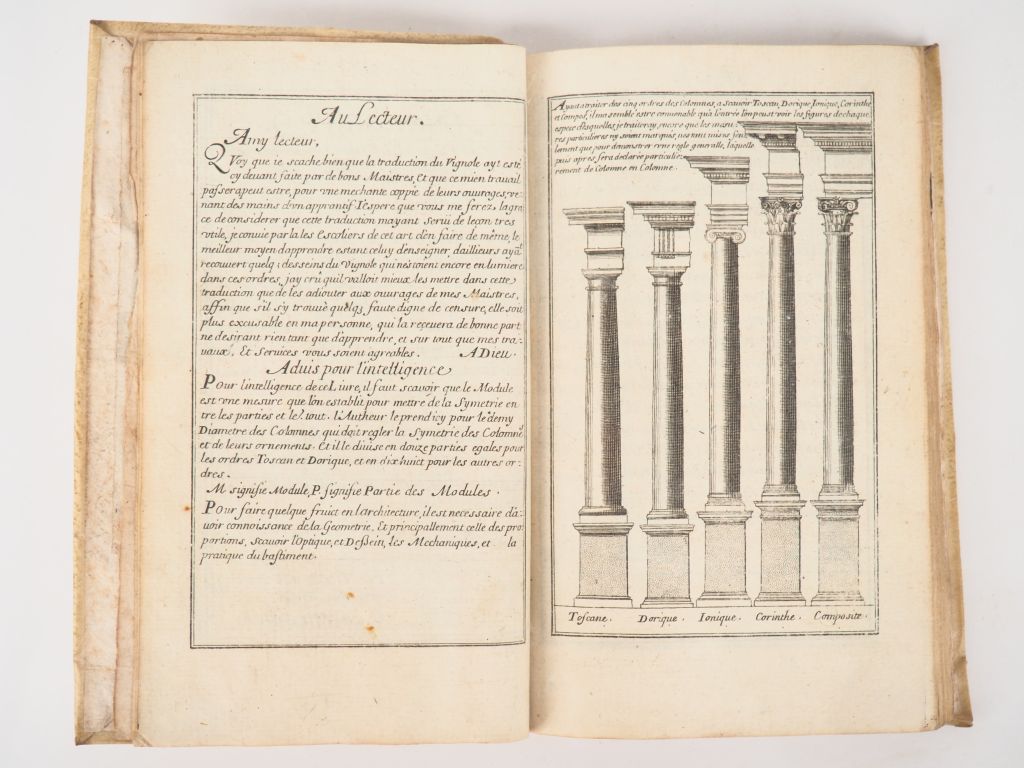 Au Lecteur.
Amy lecteur,
QVoy que ie scache bien que la traduction du Vignole ayt esté
cy deuant, faite par de bons Maistres, Et que ce mien trauail
passera peut estre, pour vne mechante coppie de leurs ouurages, ve-
nant des mains d'vn apprantif. I'espere que vous me ferez la gra
ce de considerer que cette traduction m'ayant serui de leçon tres
vtile, je conuie par la les Escoliers de cet art, d'en faire de méme, le
meilleur moyen d'apprendre estant celuy d'enseigner, dailleurs ayāt
recouuert quelq; desseins du Vignole qui n'estoient encore en lumiere
dans ces ordres, jay crû qu'il valloit mieux les mettre dans cette
traduction que de les adiouter aux ouurages de mes Maistres,
affin que s'il s'y trouue quelqs. faute digne de censure, elle soit
plus excusable en ma personne, qui la receuera de bonne part
ne desirant rien tant que d'apprendre, et sur tout que mes tra-
vaux, Et Services vous soient agreables. ADieu.
Aduis pour l'intelligence
POur l'intelligence de ce Liure, il faut scauoir que le Module
est vne mesure que l'on establit pour mettre de la Symetrie en
tre les parties et le tout. l'Autheur le prend icy pour le demy
Diametre des Colomnes qui doit regler la Symetrie des Colomne
et de leurs ornements. Et il le diuise en douze parties egales pour
les ordres Toscan et Dorique, et en dix huict pour les autres or-
dres.
M. signifie Module, P. signifie Partie des Modules.
POur faire quelque fruict en l'architecture, il est necessaire d'a-
uoir connoissance de la Geometrie, Et principallement celle des pro
portions, scauoir l'Optique, et Dessein, les Mechaniques, et la
pratique du bastiment.
Ayant a traiter des cinq ordres des Colomnes, a scauoir Toscan, Dorique, Ionique, Corinthe
et Compos, il m'a semblé estre conuenable qu'a l'entrée l'on peust voir les figures de chaque
espece d'asquelles je traiteray, encore que les mesu-
res particulieres n'y soient marqués, nestant mises seu-
lement que pour demonstrer vne regle generalle, laquelle
puis apres sera declarée particulie-
rement de Colomne en Colomne.
Toscane. Dorique. Ionique. Corinthe. Composite.